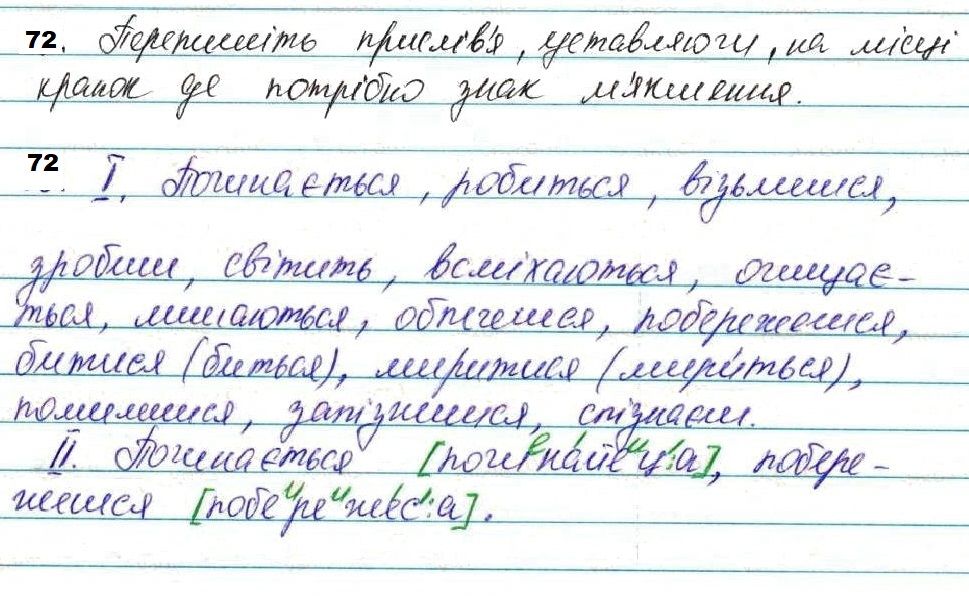 72. Перепишіть прислів'я, уставляючи, на місці
крапок де потрібно знак м'якшення.
72 І. Починається, робиться, візьмешся,
зробиш, світить, всміхаються, очищає-
ться, лишаються, обпечешся, побережешся,
битися (биться), миритися (мириться),
помилишся, запізнишся, спізнаєш.
ІІ. Починається [почиᵉнайеиц':а], побере-
жешся [побеире​ижес':а].